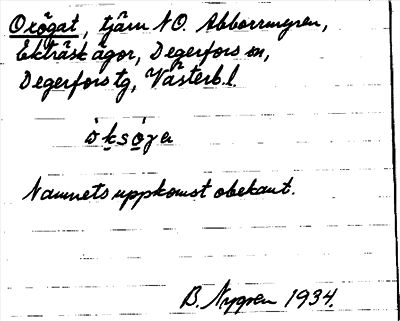 Oxögat, tjärn NO. Abborrmyren,
Ekträsk ägor, Degerfors sn,
Degerfors tg, Västerb.l.
Namnets uppkomst obekant.
B. Nygren 1934.